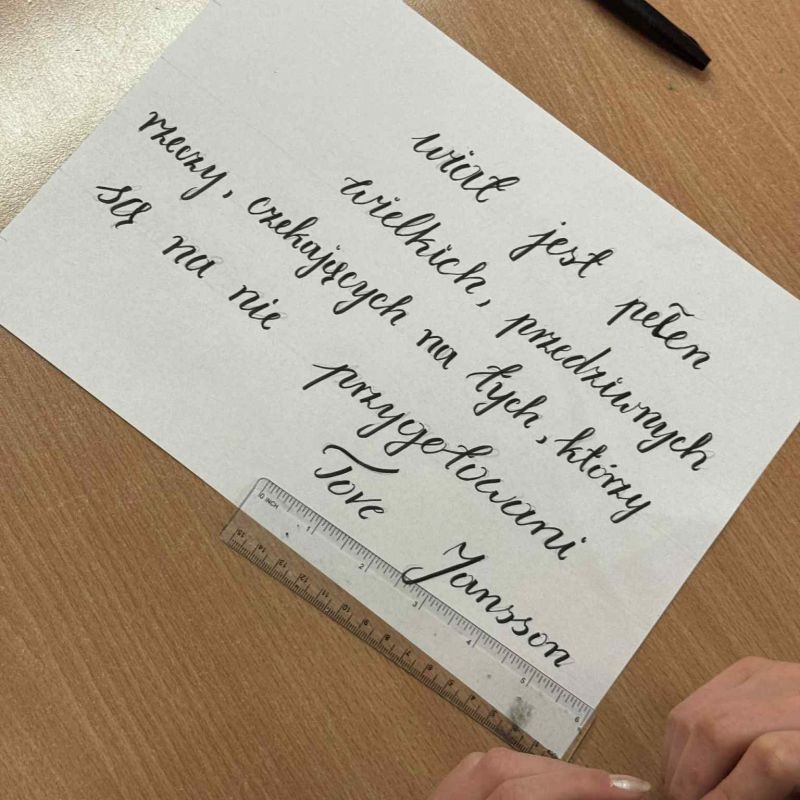 wiat jest pełen
wielkich, przedziwnych
rzeczy, czekających na tych, którzy
są na nie przygotowani
Tove Jansson
0 INCH 1 2 3 4 5 6
15 14 13 12 11 10 9 8 7 6 5 4 3